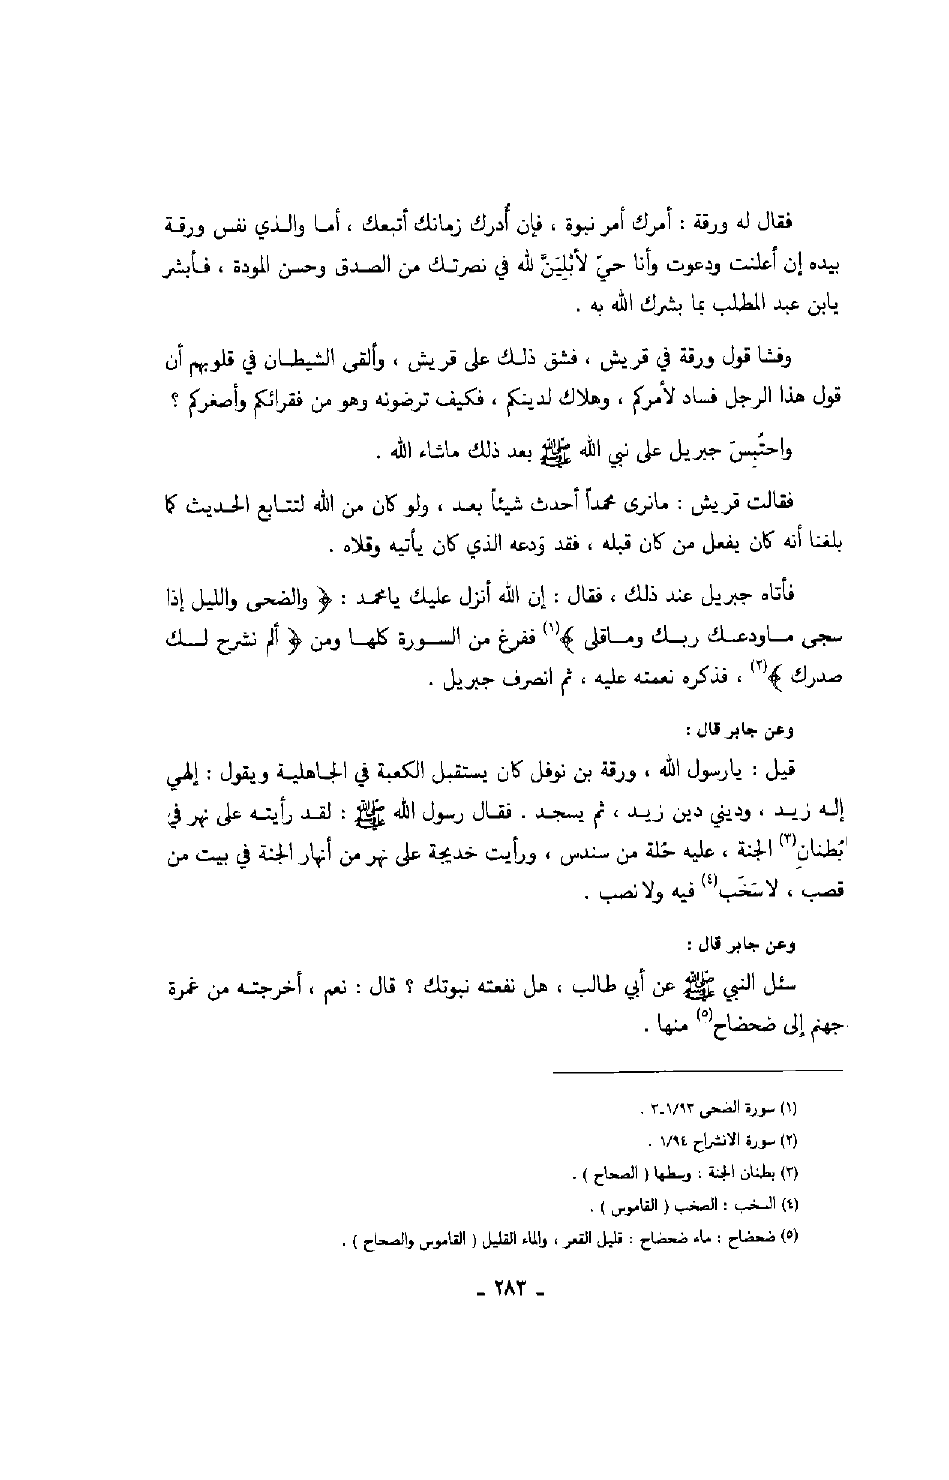 فقال له ورقة : أمرك أمر نبوة ، فإن أُدرك زمانك أتبعك ، أما والذي نفس ورقة
بيده إن أعلنت ودعوت وأنا حيّ لأَبْلِيَنَّ لله في نصرتك من الصدق وحسن المودة ، فأبشر
يابن عبد المطلب بما بشرك الله به .
وفشا قول ورقة في قريش ، فشق ذلك على قريش ، وألقى الشيطان في قلوبهم أن
قول هذا الرجل فساد لأمركم ، وهلاك لدينكم ، فكيف ترضونه وهو من فقرائكم وأصغركم ؟
واحتُبِسَ جبريل على نبي الله ﷺ بعد ذلك ماشاء الله .
فقالت قريش : مانرى محمداً أحدث شيئاً بعد ، ولو كان من الله لتتابع الحديث كما
بلغنا أنه كان يفعل من كان قبله ، فقد وَدعه الذي كان يأتيه وقلاه .
فأتاه جبريل عند ذلك ، فقال : إن الله أنزل عليك يامحمد : ﴿ والضحى والليل إذا
سجى ماودعك ربك وماقلى ﴾(١) ففرغ من السورة كلها ومن ﴿ ألم نشرح لك
صدرك ﴾(٢) ، فذكره نعمته عليه ، ثم انصرف جبريل .
وعن جابر قال :
قيل : يارسول الله ، ورقة بن نوفل كان يستقبل الكعبة في الجاهلية ويقول : إلهي
إله زيد ، وديني دين زيد ، ثم يسجد . فقال رسول الله ﷺ : لقد رأيته على نهر في
بُطنانِ(٣) الجنة ، عليه حُلة من سندس ، ورأيت خديجة على نهر من أنهار الجنة في بيت من
قصب ، لاسَخَب(٤) فيه ولا نصب .
وعن جابر قال :
سئل النبي ﷺ عن أبي طالب ، هل نفعته نبوتك ؟ قال : نعم ، أخرجته من غمرة
جهنم إلى ضحضاح(٥) منها .
(١) سورة الضحى ١/٩٣ـ٣ .
(٢) سورة الانشراح ١/٩٤ .
(٣) بطنان الجنة : وسطها ( الصحاح ) .
(٤) السخب : الصخب ( القاموس ) .
(٥) ضحضاح : ماء ضحضاح : قليل القعر ، والماء القليل ( القاموس والصحاح ) .
ـ ٢٨٣ ـ